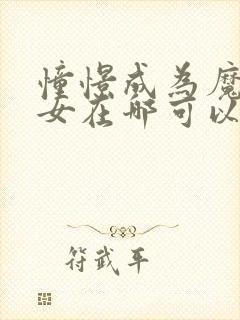 憧憬成为魔
女在哪可以
符武平